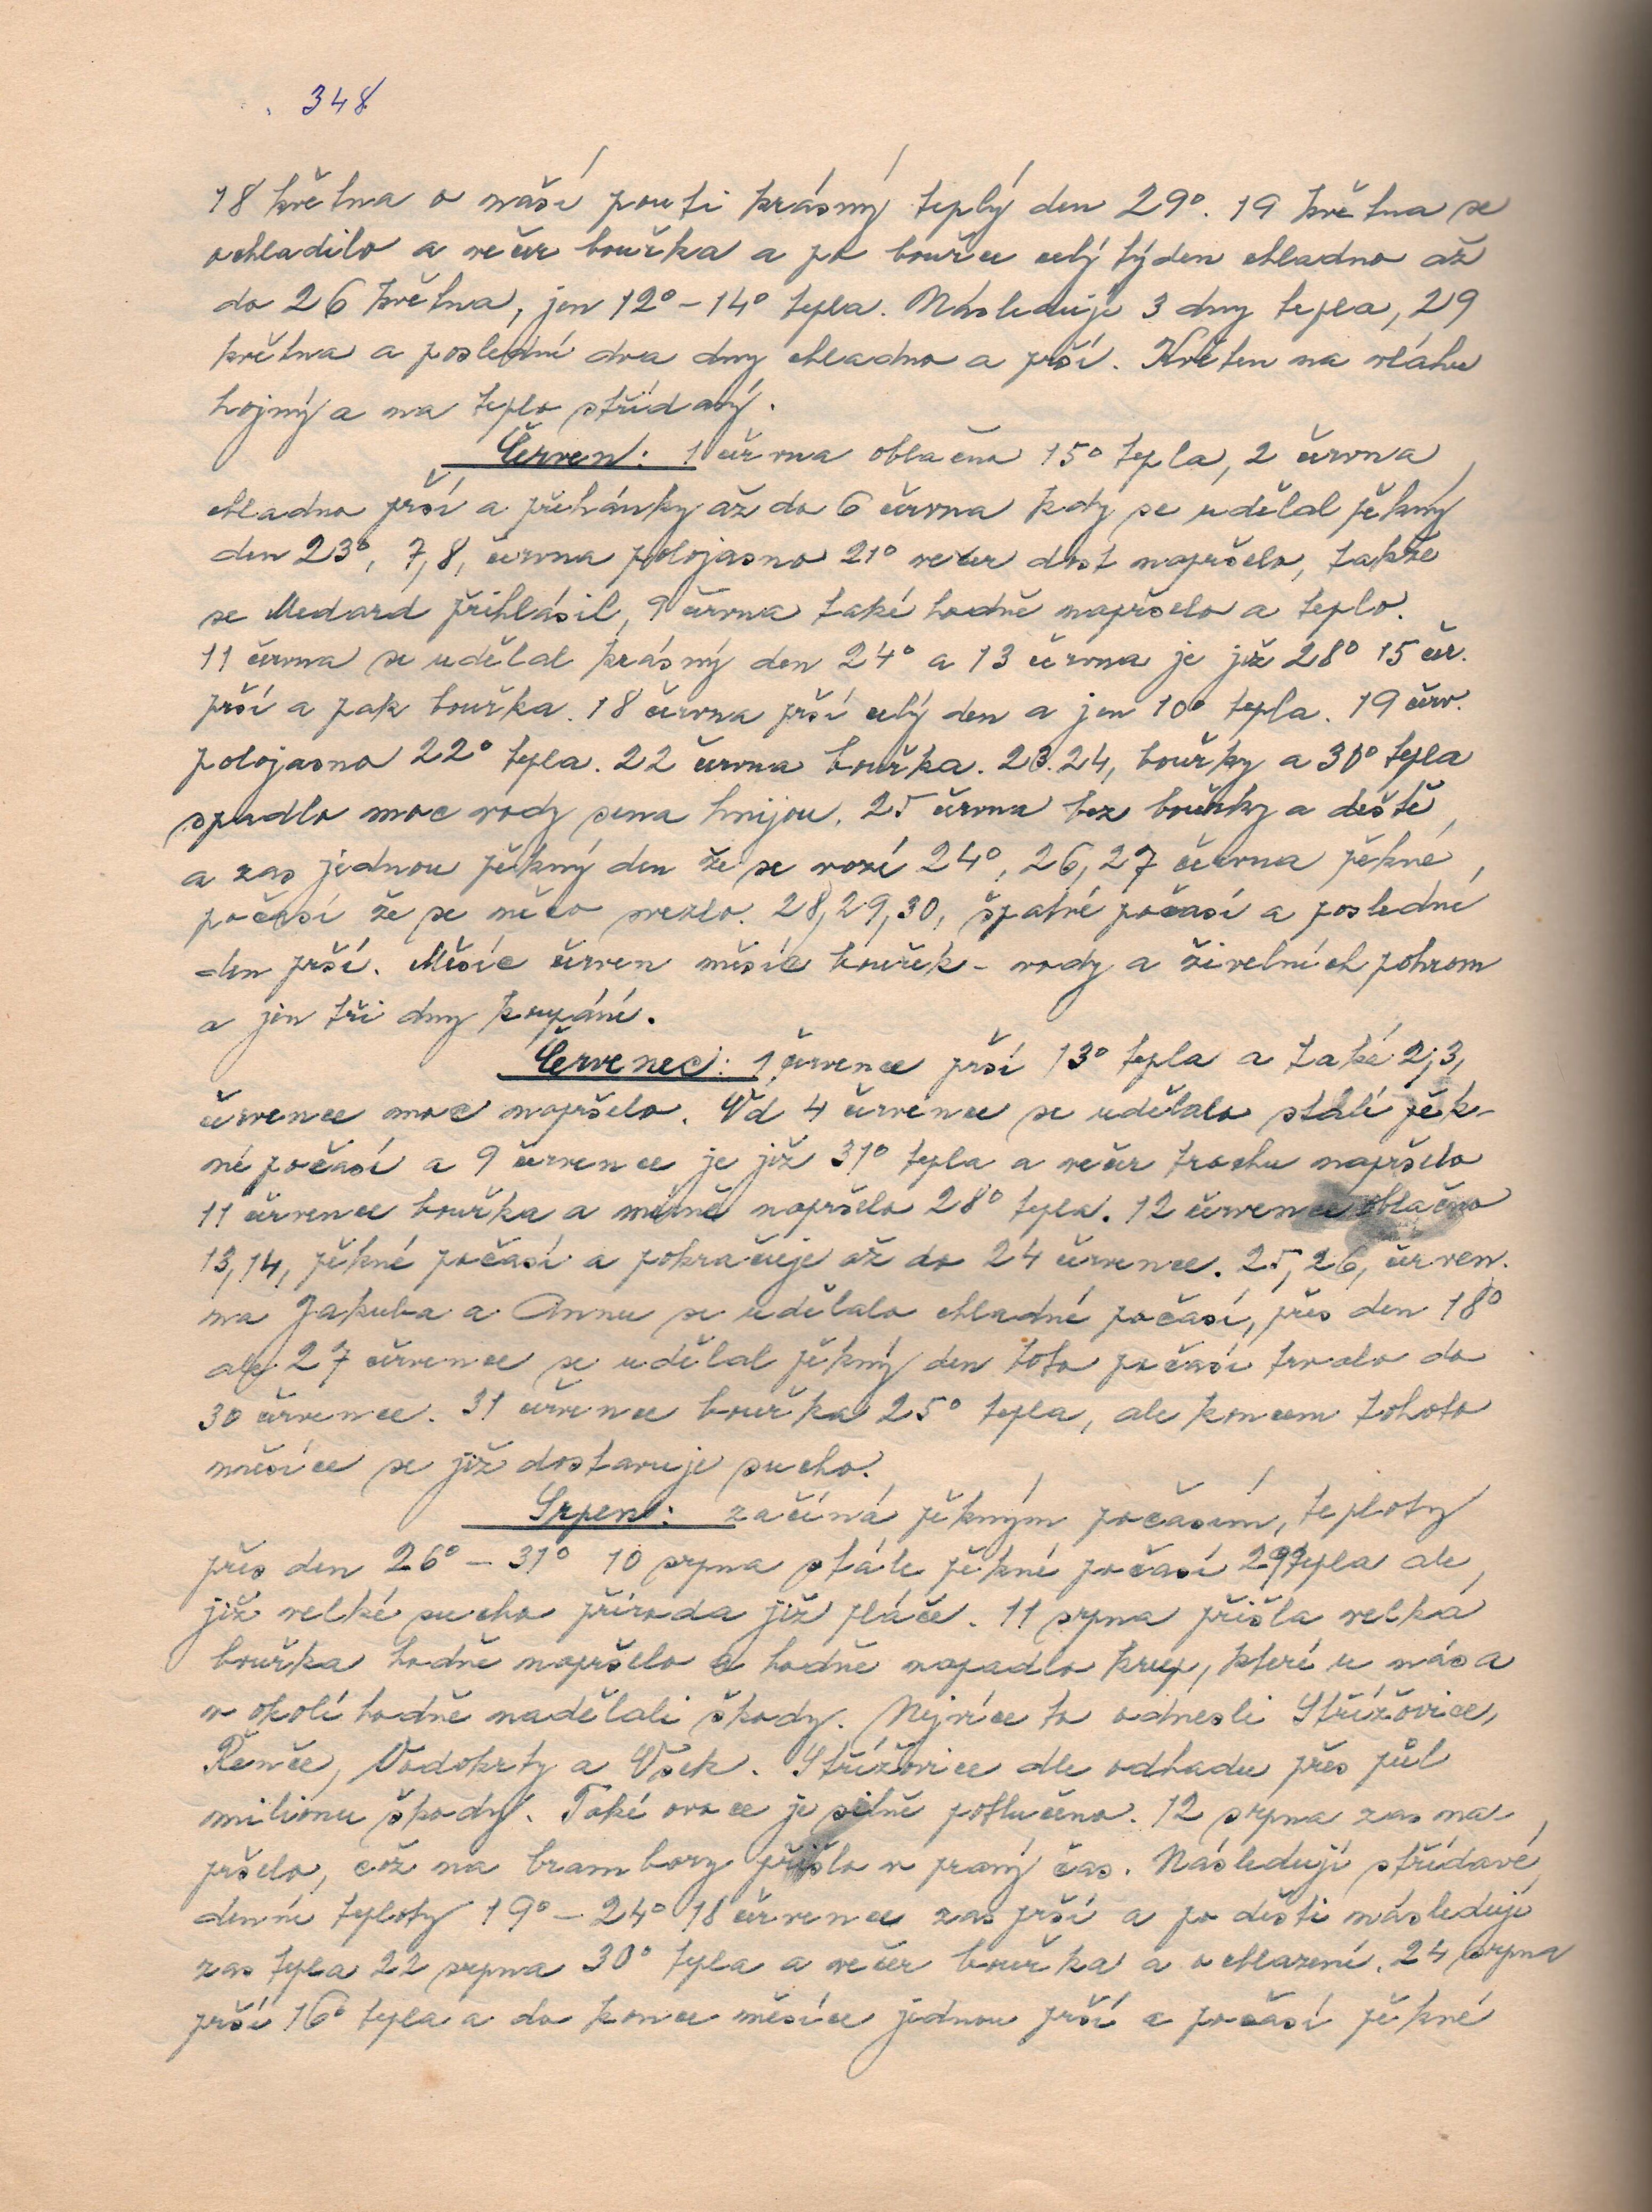 348
18 května o naší pouti krásný teplý den 29°. 19 května se
ochladilo a večer bouřka a po bouřce celý týden chladno až
do 26 května, jen 12° – 14° tepla. Následuje 3 dny tepla, 29
května a poslední dva dny chladno a prší. Květen na vláhu
hojný a na teplo střídavý.
Červen: 1 června oblačno 15° tepla, 2 června
chladno prší a přehánky až do 6 června kdy se udělal pěkný
den 23°, 7, 8, června polojasno 21° večer dost napršelo, takže
se Medard přihlásil, 9 června také hodně napršelo a teplo.
11 června se udělal krásný den 24° a 13 června je již 28° 15 čer.
prší a pak bouřka. 18 června prší celý den a jen 10° tepla. 19 červ.
polojasno 22° tepla. 22 června bouřka. 23. 24, bouřky a 30° tepla
spadlo moc vody sena hnijou. 25 června bez bouřky a deště
a zas jednou pěkný den že se vozí 24°, 26, 27 června pěkné
počasí že se něco svezlo. 28, 29, 30, špatné počasí a poslední
den prší. Měsíc červen měsíc bouřek – vody a živelních pohrom
a jen tři dny koupání.
Červenec: 1 července prší 13° tepla a také 2, 3,
července moc napršelo. Od 4 července se udělalo stálí pěk-
né počasí a 9 července je již 31° tepla a večer trochu napršelo
11 července bouřka a mírně napršelo 28° tepla. 12 července oblačno
13, 14, pěkné počasí a pokračuje až do 24 července. 25, 26, červen.
na Jakuba a Annu se udělalo chladné počasí, přes den 18°
ale 27 července se udělal pěkný den toto počasí trvalo do
30 července. 31 července bouřka 25° tepla, ale koncem tohoto
měsíce se již dostavuje sucho.
Srpen: začíná pěkným počasím, teploty
přes den 26° – 31° 10 srpna stále pěkné počasí 29° tepla ale
již velké sucho příroda již pláče. 11 srpna přišla velká
bouřka hodně napršelo a hodně napadlo krup, které u nás a
v okolí hodně nadělali škody. Nejvíce to odnesli Střížovice,
Řenče, Vodokrty a Osek. Střížovice dle odhadu přes půl
milionu škody. Také ovoce je silně potlučeno. 12 srpna zas na-
pršelo, což na brambory přišlo v pravý čas. Následují střídavé
denní teploty 19° – 24° 18 července zas prší a po dešti následují
zas tepla 22 srpna 30° tepla a večer bouřka a ochlazení. 24 srpna
prší 16° tepla a do konce měsíce jednou prší a počasí pěkné